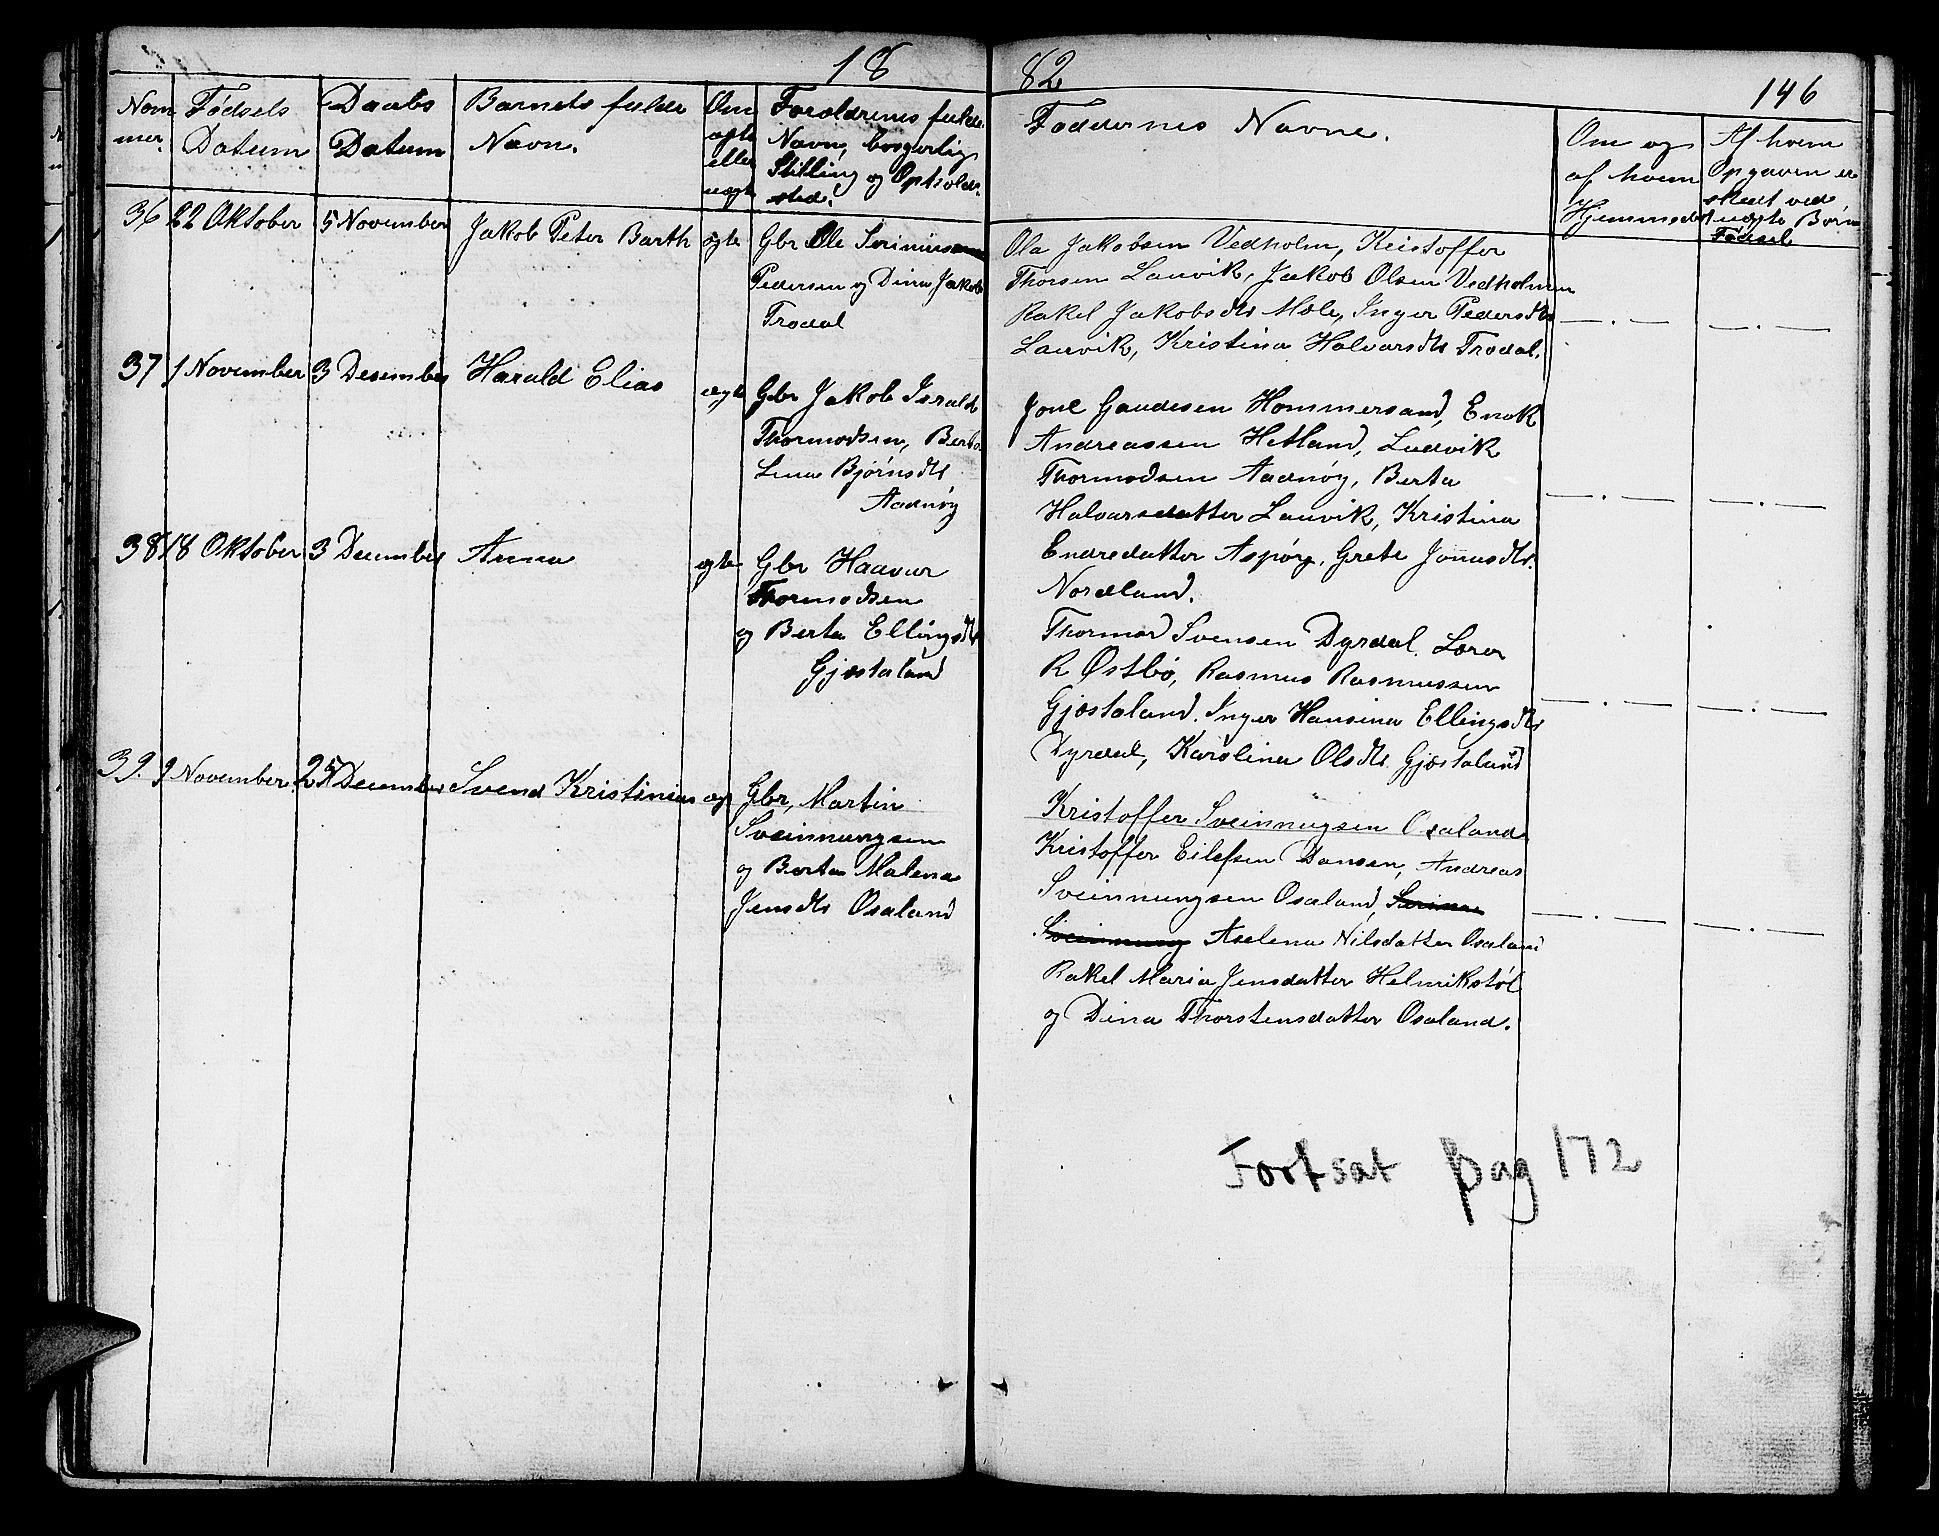 18 82
146
Nom
mer.
Fødsels
Datum
Daabs
Datum
Barnets fulde
Navn.
Om
ægte
eller
uægte
Forældrenes fulde
Navn, borgerlig
Stilling og Opholds-
sted.
Faddernes Navne.
Om og
af hvem
Hjemmedøbt
Af hvem
Opgaven er
skeet ved
uægte Børns
Fødsel
36 22 Oktober 5 November Jakob Peter Barth ægte
Gbr Ole
Pedersen og Dina Jakob
Trodal
Ola Jakobsen Vedholm, Kristoffer
Thorsen Lauvik, Jakob Olsen Vedholmen
Rakel Jakobsdtr Mæle, Inger Pedersdtr
Lauvik, Kristina Halvarsdtr Trodal.
37 1 November 3 Desember Harald Elias ægte
Gbr Jakob
Thormodsen, Berta
Lina Bjørnsdtr
Aadnøy
Jone Gaudesen Hommersand, Enok
Andreassen Hetland, Ludvik
Thormodsen Aadnøy, Berta
Halvarsdatter Lauvik, Kristina
Endredatter Aspøy, Grete Jonasdtr.
Nordland.
38 18 Oktober 3 December Anna ægte
Gbr Haavar
Thormodsen
og Berta Ellingsdtr
Gjæstaland
Thormod Svensen Dyrdal. Lærer
R Østbø, Rasmus Rasmussen
Gjæstaland. Inger Hansina Ellingsdtr
Dyrdal, Karolina Olsdtr. Gjæstaland
39. 9 November. 25 December Svend Kristinius æg
Gbr, Martin
Sveinnungsen
og Berta Malena
Jensdtr Osaland
Kristoffer Sveinnugsen Osaland
Kristoffer Eilefsen Dansen, Andreas
Sveinnungsen Osaland,
Sveinnung Aselena Nilsdatter Osaland
Rakel Maria Jensdatter Helmikstøl
og Dina Thorstensdatter Osaland.
Fortsat pag 172